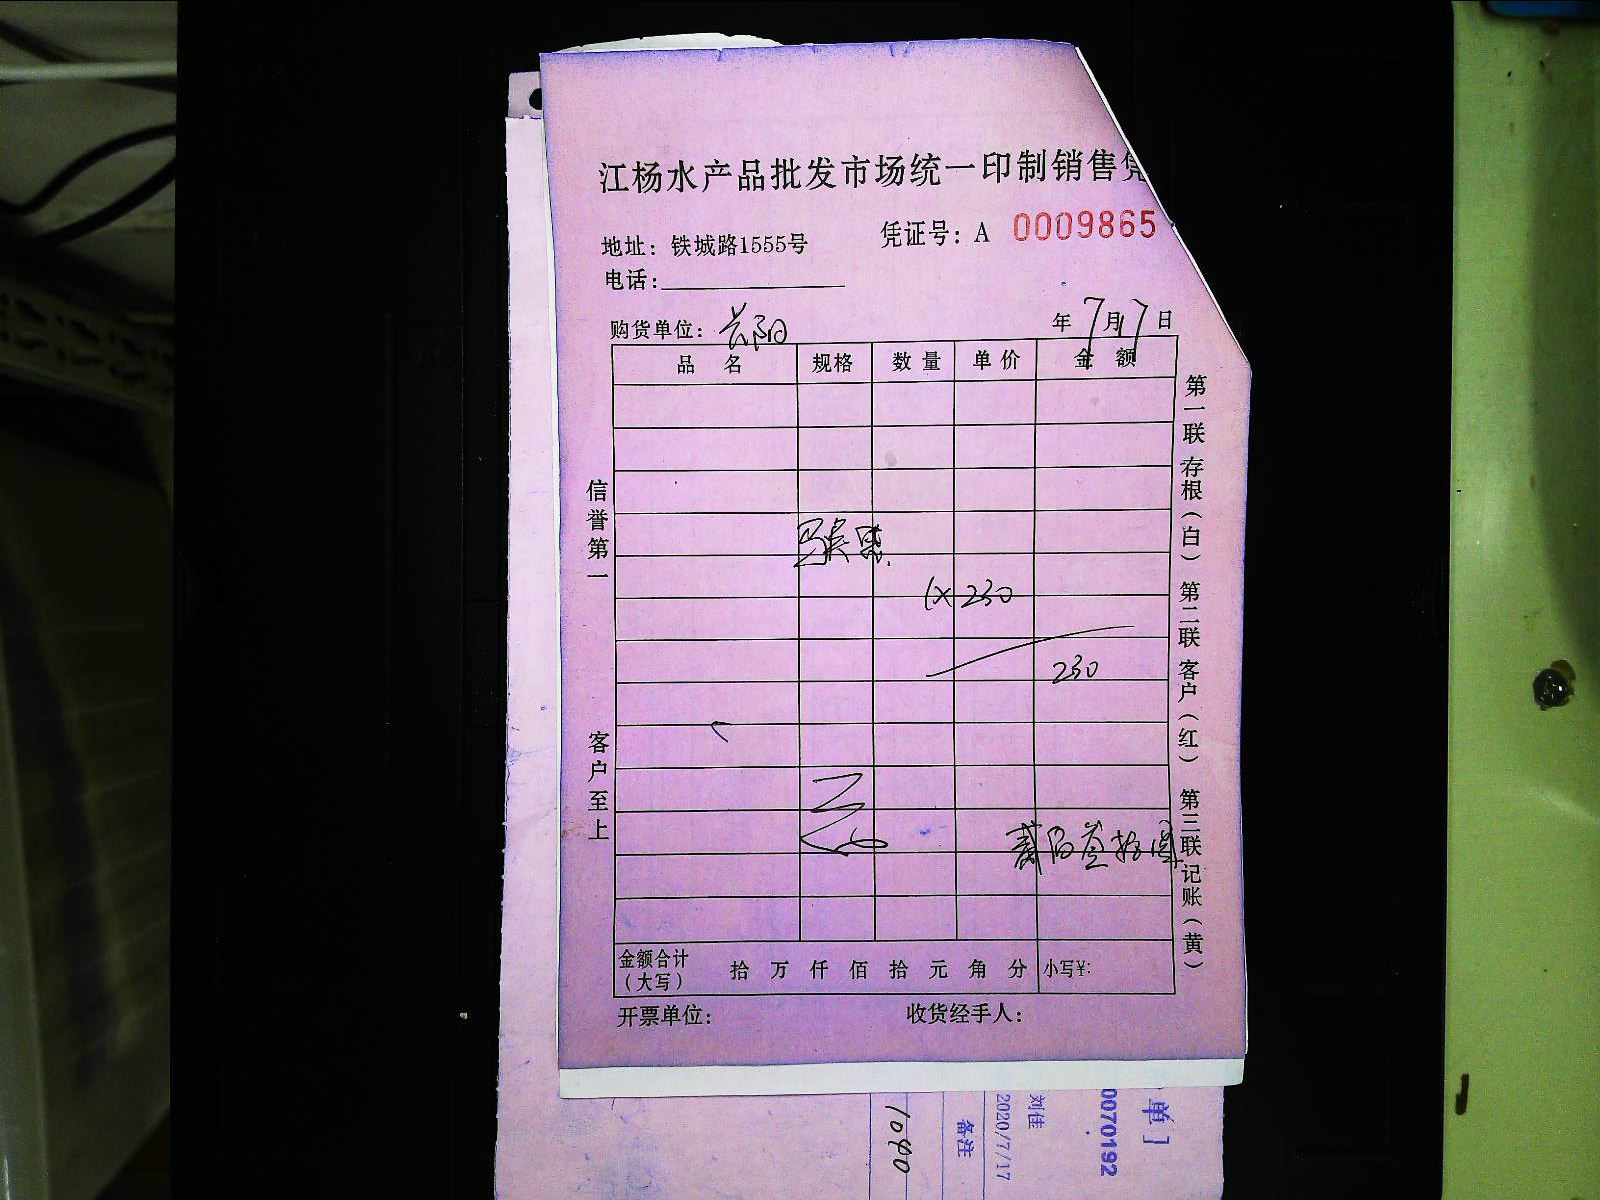 江杨水产品批发市场统一印制销售凭
凭证号：A 0009865
地址：铁城路1555号
电话：
购货单位：长阳
年7月17日
品名 规格 数量 单价 金额
1×230
230
贰佰叁拾圆
金额合计（大写） 拾 万 仟 佰 拾 元 角 分 小写¥：
开票单位： 收货经手人：
信誉第一
客户至上
第一联 存根（白） 第二联 客户（红） 第三联 记账（黄）
单】
0070192
刘佳
2020/7/17
备注
1090